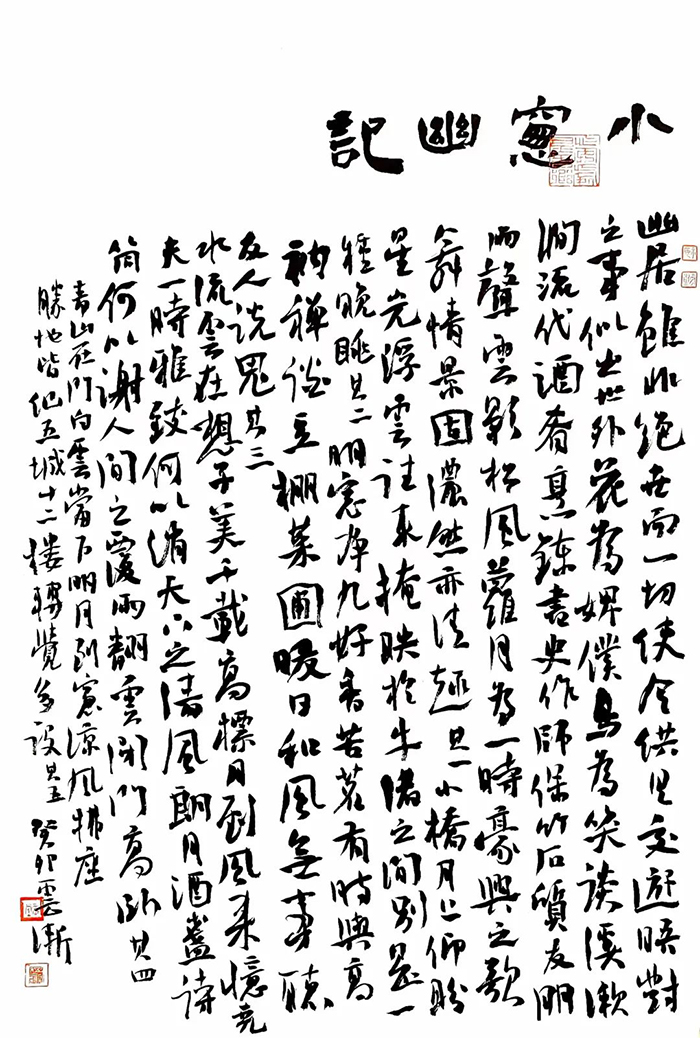 小窻幽記
幽居雖非絕世而一切使令供具交遊晤對
之事似出世外花為婢僕鳥為笑談溪漱
澗流代酒肴烹鍊書史作師保竹石質友朋
雨聲雲影松風蘿月為一時豪興之歌
舞情景固濃然亦清趣其一小橋月上仰盼
星光浮雲往來掩映於牛渚之間別是一
種晚眺其二明窻净几好香苦茗有時與高
衲禪談豆棚菜圃暖日和風無事聽
友人説鬼其三
水流雲在想子美千載高標月到風来憶堯
夫一時雅致何以消天下之清風朗月酒盞詩
筒何以謝人間之覆雨翻雲閉門高卧其四
青山在門白雲當户明月到窻涼風拂座
勝地皆仙五城十二樓轉覺多設其五癸卯雲漸